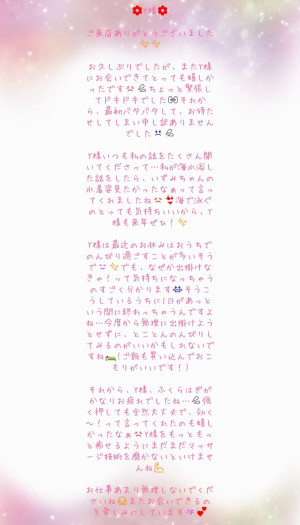 Y様
ご来店ありがとうございました
✨✨
お久しぶりでしたが、またY様
にお会いできてとっても嬉しか
ったです💦ちょっと緊張し
てドキドキでした👀それか
ら、最初バタバタして、お待た
せしてしまい申し訳ありません
でした💦
Y様いつも私の話をたくさん聞
いてくださって…私が海水浴し
た話をしたら、いずみちゃんの
水着姿見たかったなぁって言っ
てくれましたね💕海で泳ぐ
のとっても気持ちいいから、Y
様も来年ぜひ!✨
Y様は最近のお休みはおうちで
のんびり過ごすことが多いそう
で✨でも、なぜか出掛けな
きゃ!って気持ちになっちゃう
のすごく分かりますそうこ
うしているうちに1日があっと
いう間に終わっちゃうんですよ
ね…今度から無理に出掛けよう
とせずに、とことんのんびりし
てみるのがいいかもしれないで
すね(ご飯も買い込んでおこ
もりがいいです!)
それから、Y様、ふくらはぎが
かなりお疲れでしたね…強
く押しても全然大丈夫で、効く
〜!って言ってくれたのも嬉し
かったなぁY様をもっともっ
と癒せるようにまだまだマッサ
ージ技術を磨かないといけませ
んね💪
お仕事あまり無理しないでくだ
さいねまたお会いできるの
を楽しみにしています💕